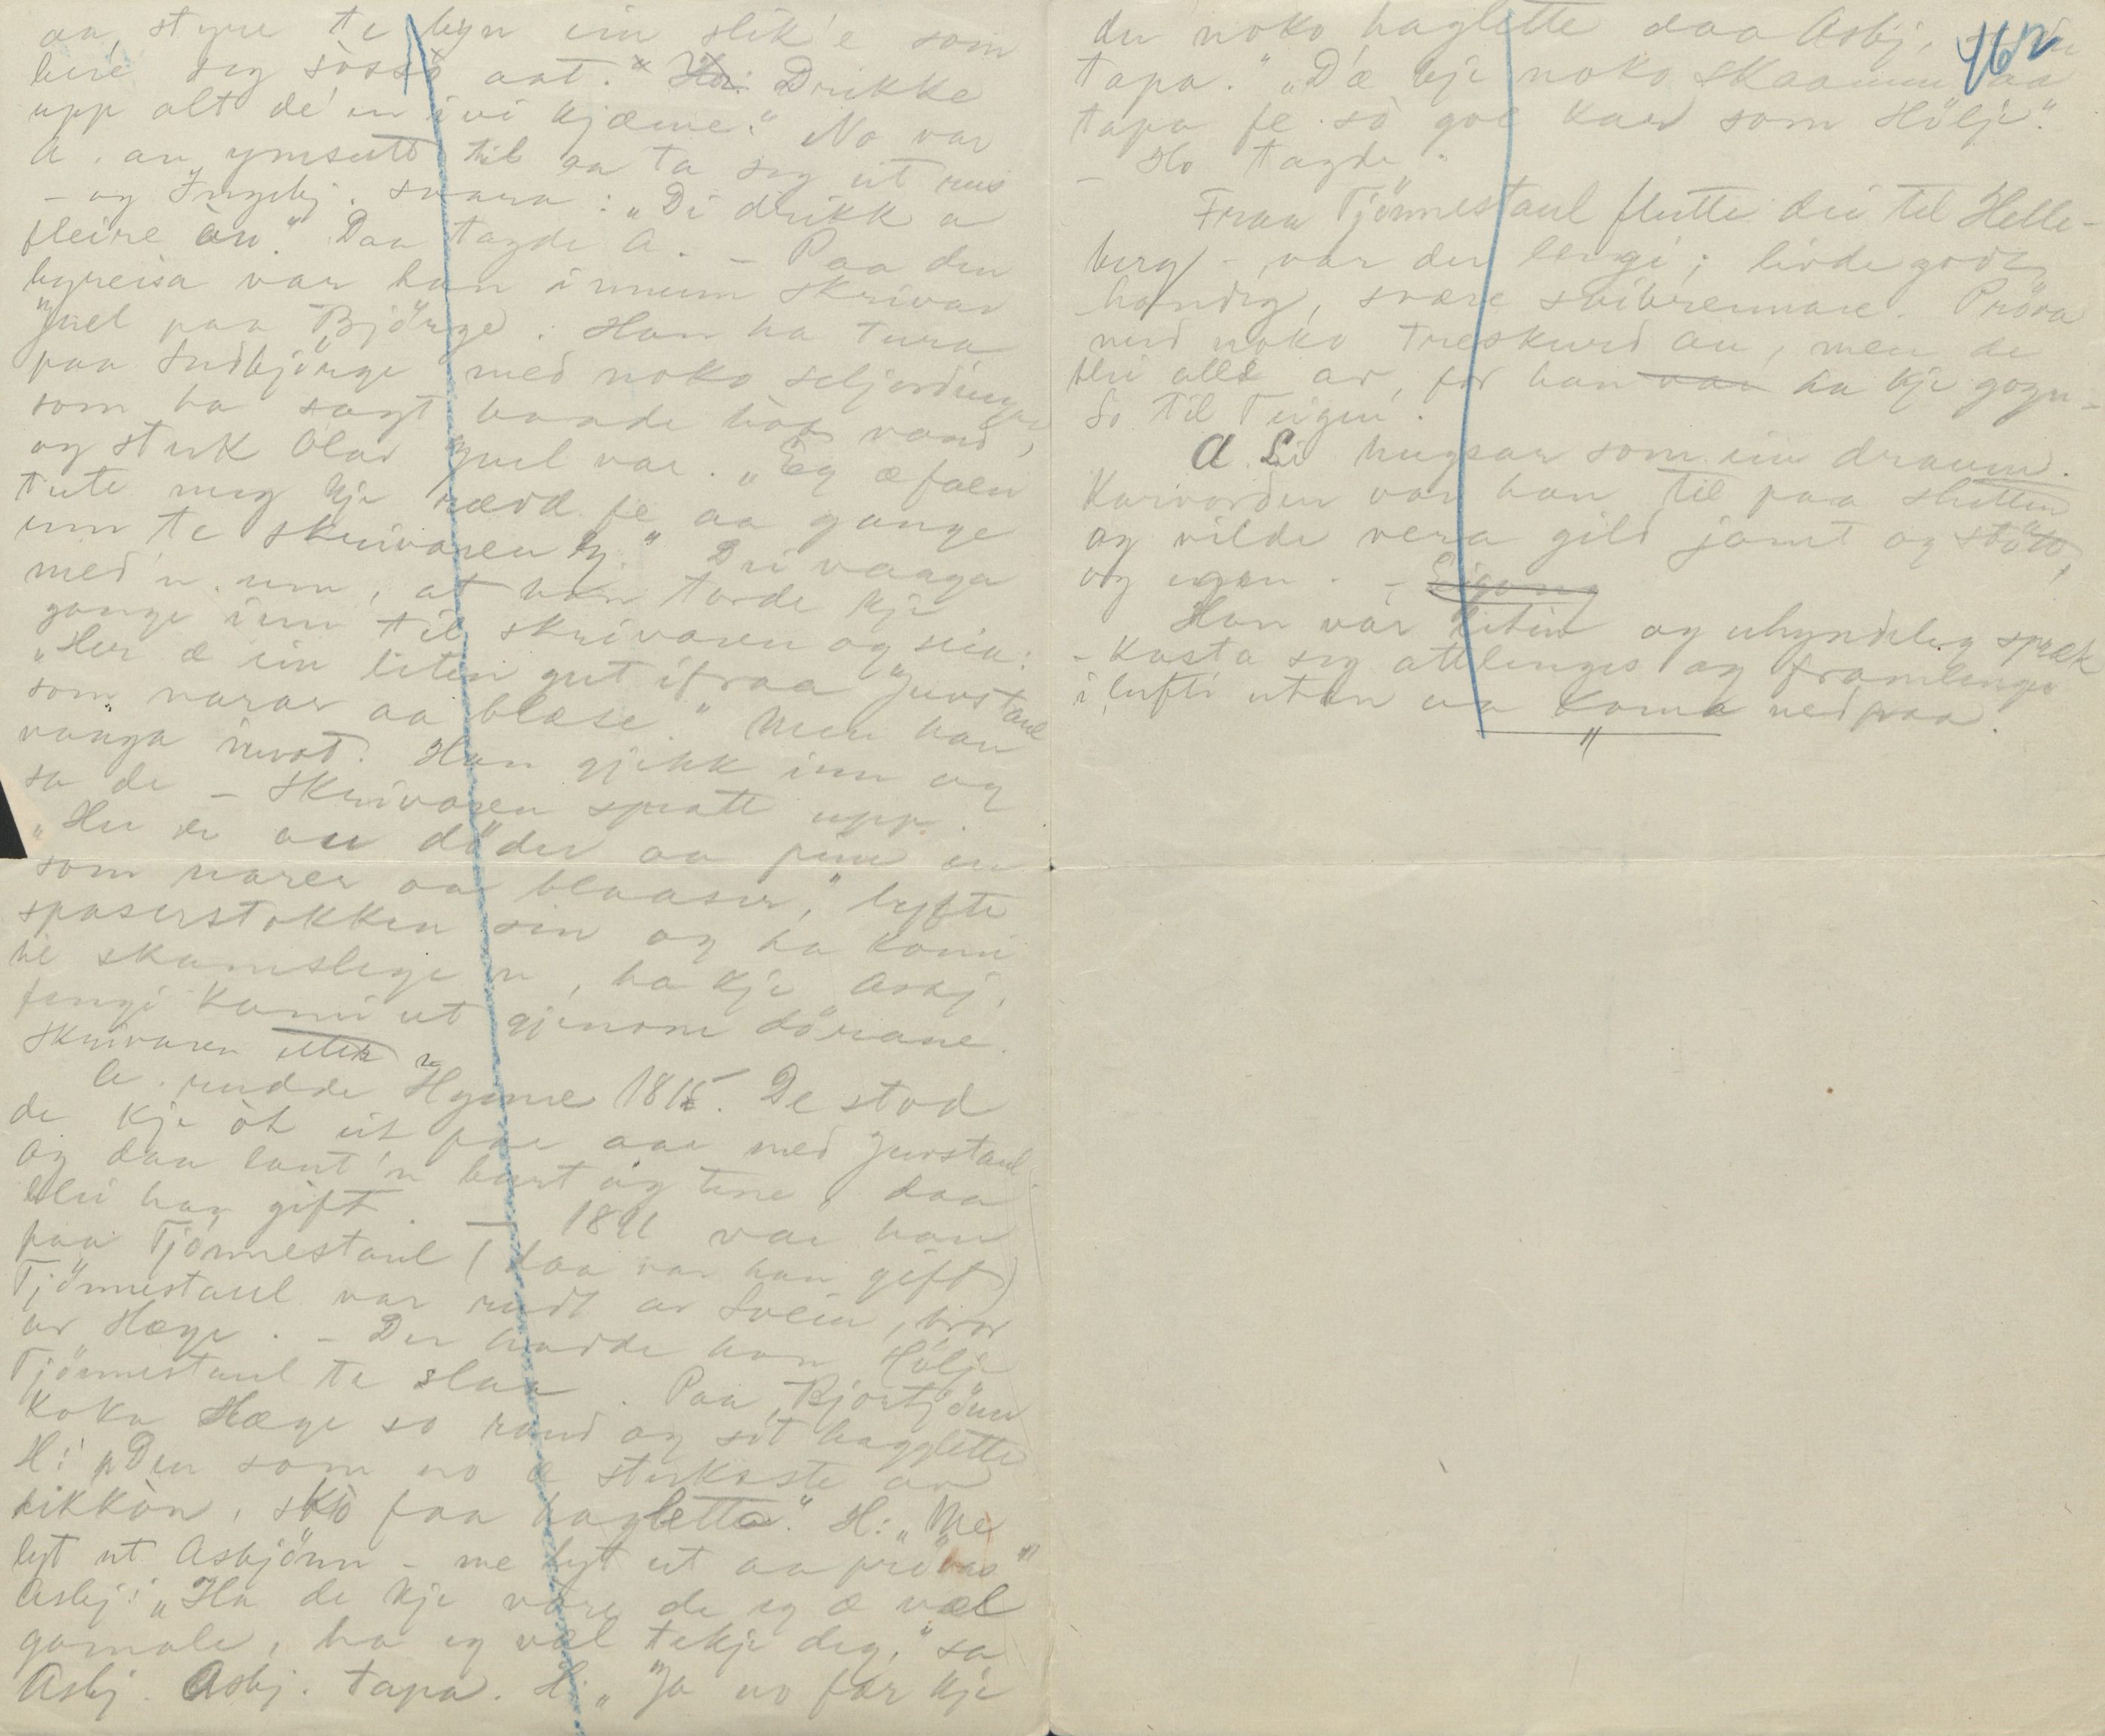 aa styre te byn ein slik'e som
bere seg sòssò aat." Drikke
upp alt de'en ivi kjæme." No var
A. au ymsutt til aa ta seg eit rus
- og Ingebj. svara: "Di drikk a
fleire àn." Daa tagde A. - Paa den
byreisa var han innum skrivar
Juel paa Bjørge. Han ha tura
paa Sudbjørge med noko seljordingar
som ha sagt baade hòt vond,
og sterk Olav Juel var. "Eg æ faen
tute meg kje rædd fe aa gange
inn te skrivaren eg." Dei vaaga
med'n um, at han torde kje
gange inn til skrivaren og seia:
"Her æ ein liten gut ifraa Juvstaul
som narar aa blæse." Men han
vaaga imot. Han gjekk inn og
sa de - Skrivaren spratt upp.
"Her er au døder aa pine en
som narer aa blaaser," lyfte
spaserstokken sin og ha komi
te skamslege'n, ha kje Asbj.
fengi komi ut gjenom dørane.
Skrivaren etter'n
A. rudde Hynne 1815. De stod
de kje òt eit par aar med Juvstaul
og daa laut'n burt og tene, daa
blei han gift. - 18 var han
paa Tjønnestaul (daa var han gift)
Tjønnestaul var rudt av Svein, bror
av Hæge. - Der hadde han Hølje
Tjønnestaul te slaa. Paa Bjortjønn
koka Hæge so raud og søt hagglette
H: "Den som no æ sterkaste av
dikkòn, skò faa hagletta." H: "Me
lyt ut Asbjønn - me lyt ut aa prøvas"
Asbj: "Ha de kje vore de eg æ væl
gamale, ha eg væl tekje deg," sa
Asbj. Asbj. tapa. H: "Ja no fær kje
du noko haglette daa Asbj,
tapa." "D'æ kje noko skaamm aa
tapa fe sò goe kar som Hølje."
- Ho tagde.
Fraa Tjønnestaul flutte dei til Helle-
berg - var der lengi; livde godt,
handig, svære svibrennare. Prøva
med noko treskurd au, men de
blei alls av, for han var ha kje gogn-
So til Teigen.
A. Li hugsar som ein draum.
Karvoren var han til paa slutten
og vilde vera gild jamt og støtt,
og egen. - Eigong
Han var liten og uhyndeleg spræk
- Kasta seg attlenges og framlenges
i lufti utan aa koma nedpaa.
"
162